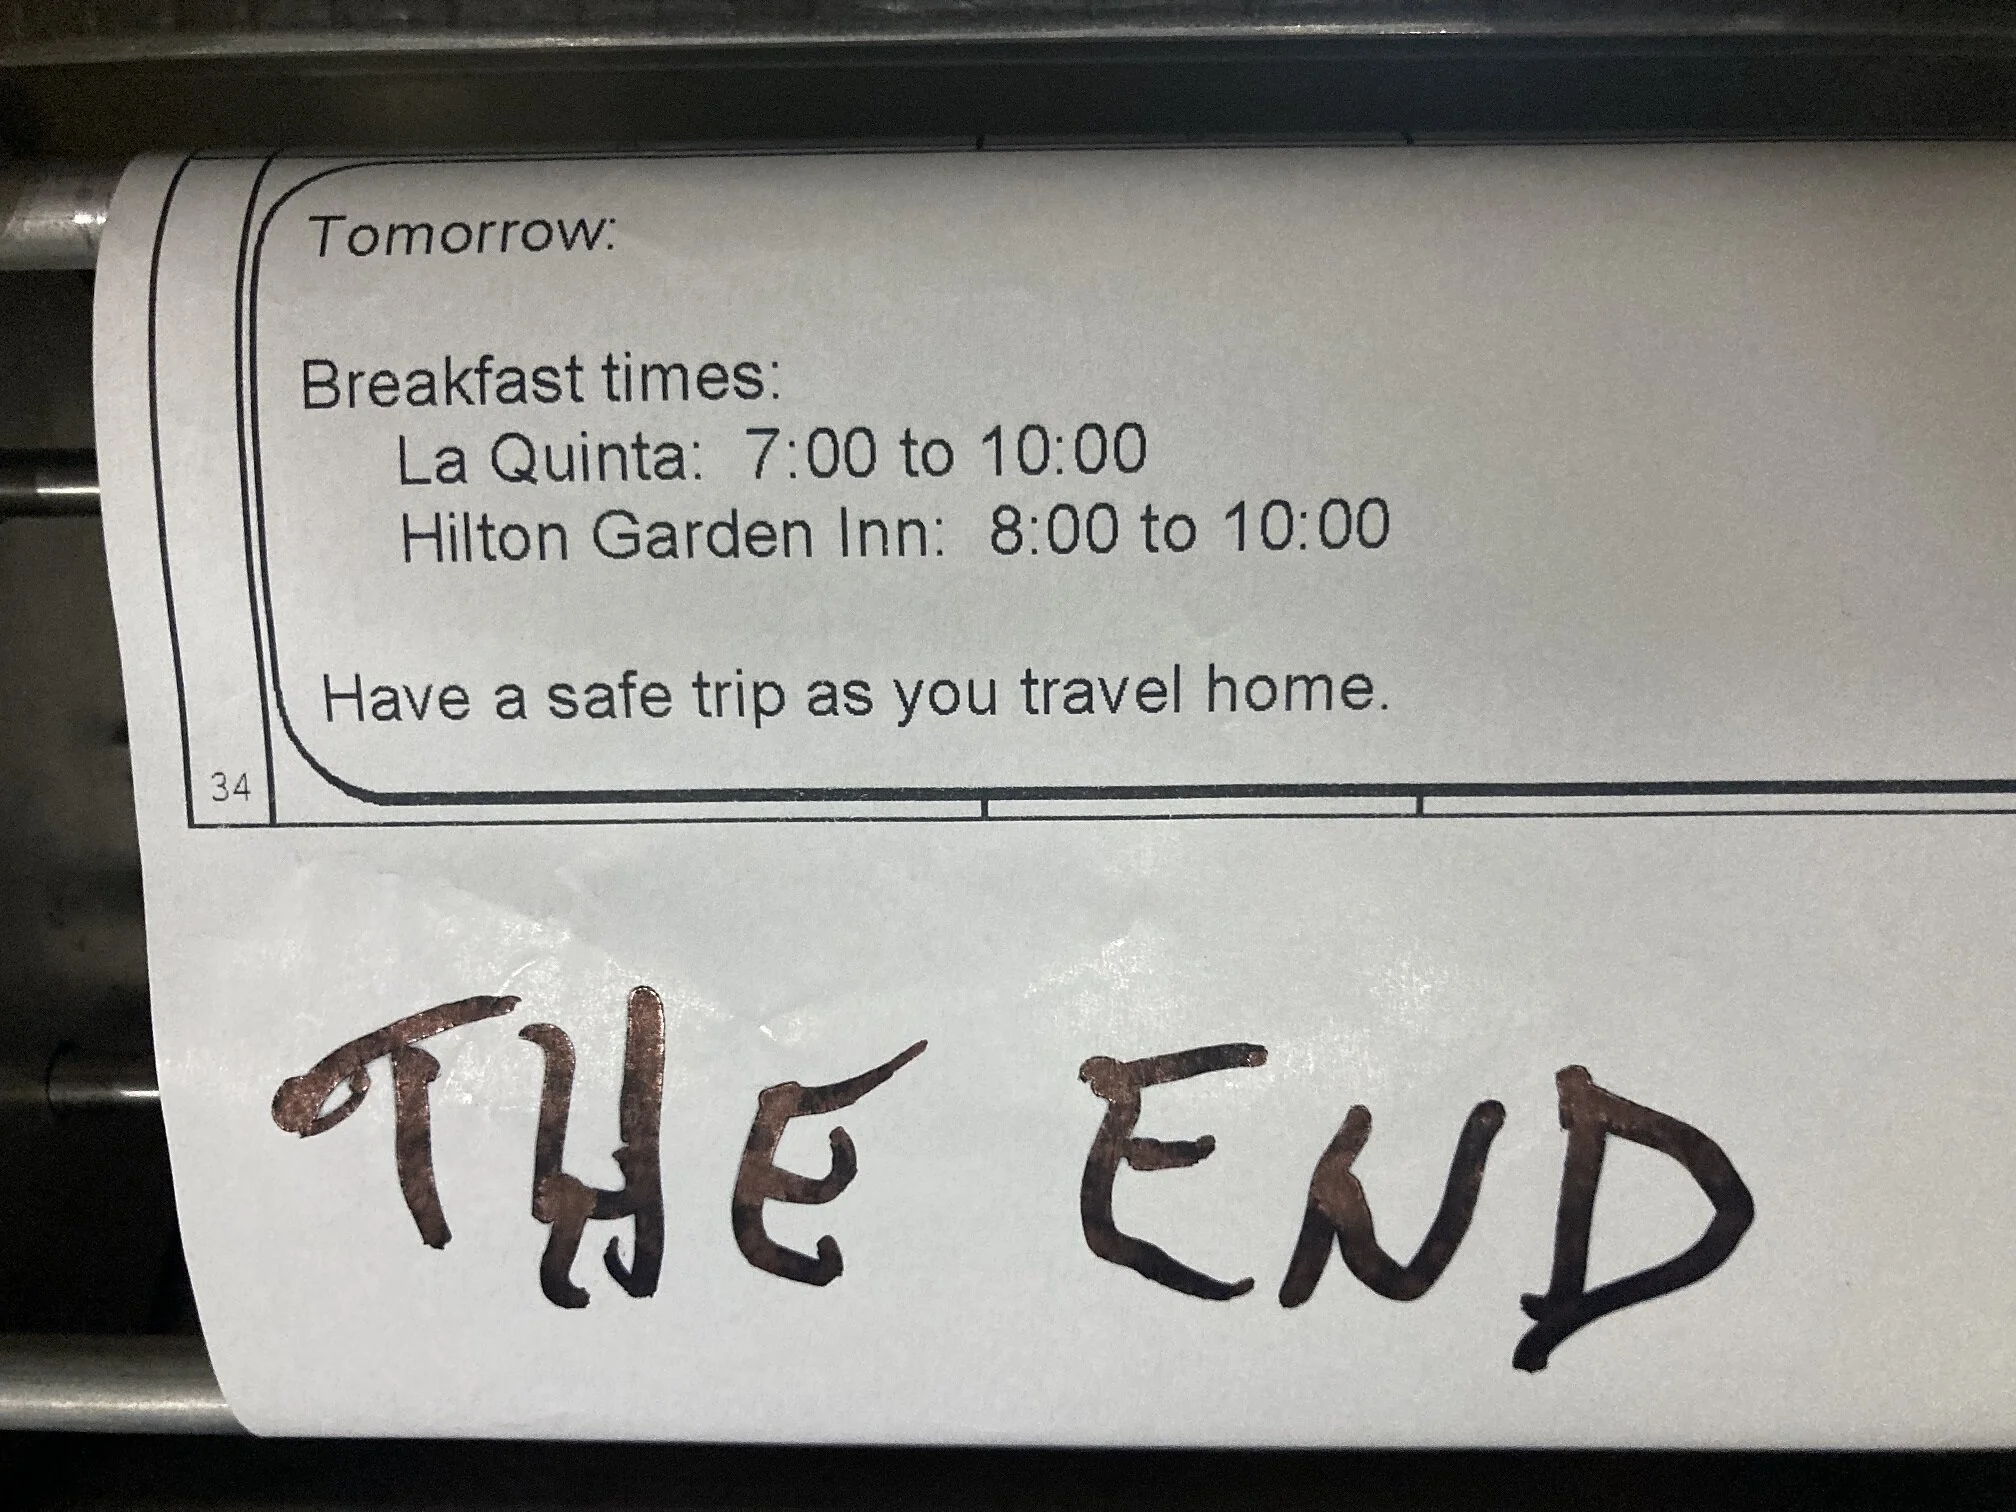 Tomorrow:
Breakfast times:
La Quinta: 7:00 to 10:00
Hilton Garden Inn: 8:00 to 10:00
Have a safe trip as you travel home.
34
THE END